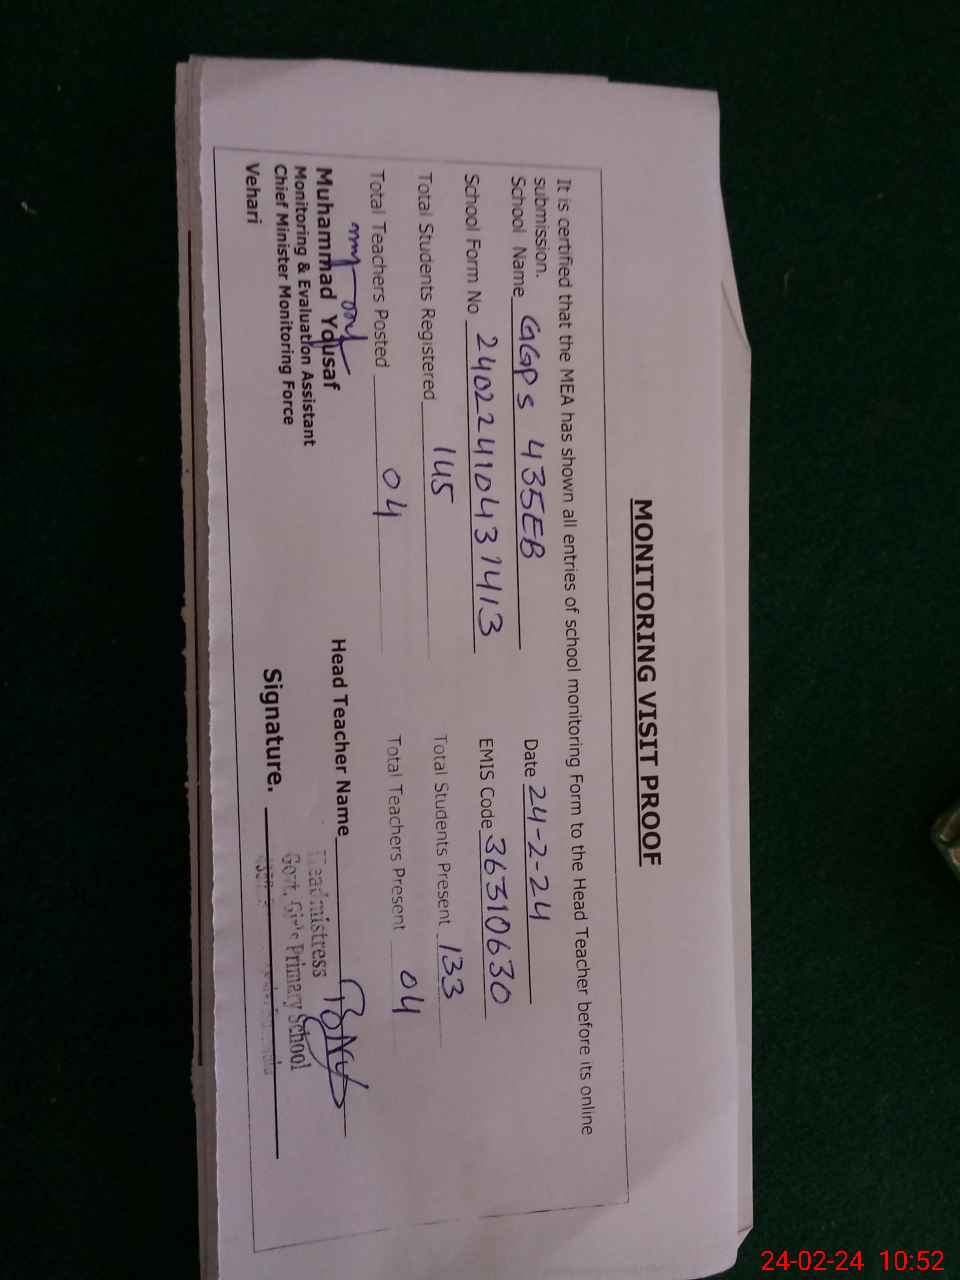 MONITORING VISIT PROOF
It is certified that the MEA has shown all entries of school monitoring Form to the Head Teacher before its online
submission.
School Name GGPS 435EB Date 24-2-24
School Form No 2402241043 1413 EMIS Code 36310630
Total Students Registered 145 Total Students Present 133
Total Teachers Posted 04 Total Teachers Present 04
Muhammad Yousaf
Monitoring & Evaluation Assistant
Chief Minister Monitoring Force
Vehari
Head Teacher Name
Headmistress
Govt. Girls Primary School
Signature.
24-02-24 10:52